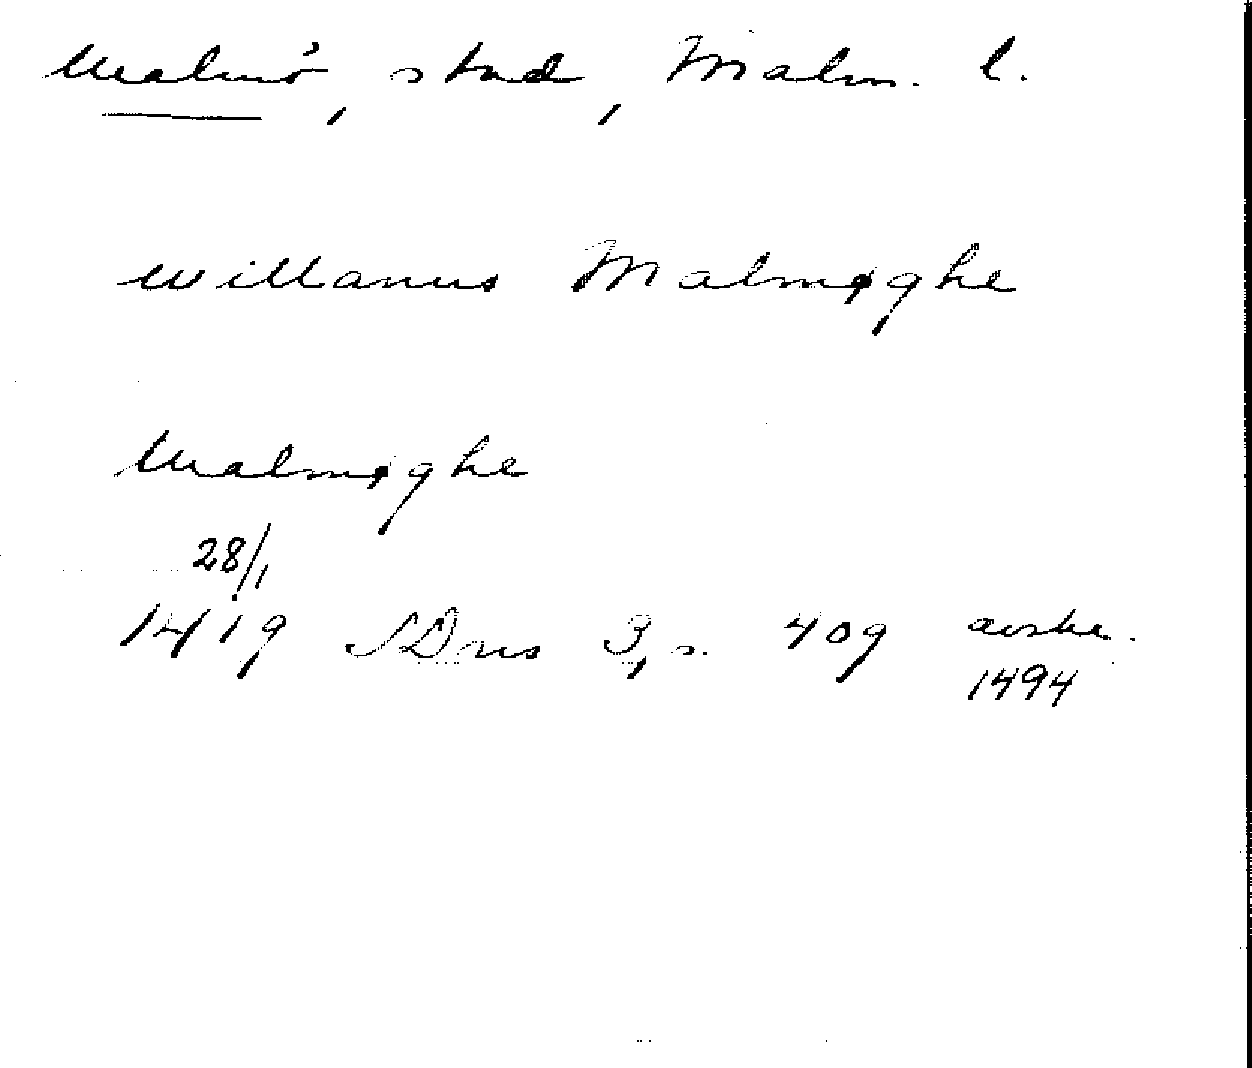 Malmö, stad, Malm. l.
willanus Malmøghe
Malmøghe
28/1
1419 SDns 3, s. 409 avskr.
1494